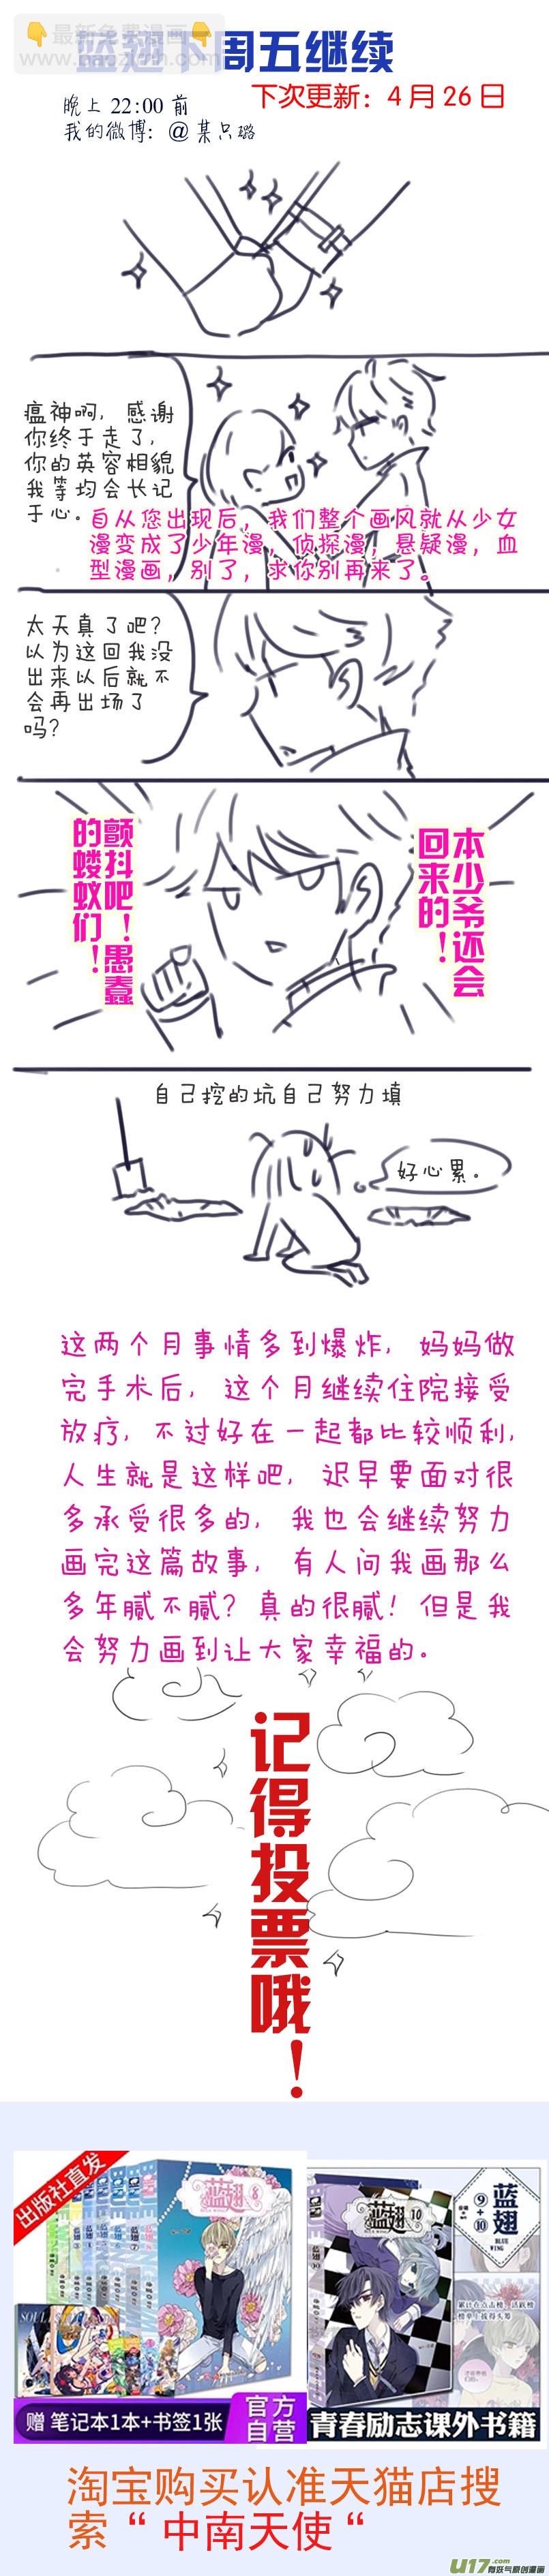 👇最新免费漫画👇
蓝翅下周五继续
下次更新：4月26日
晚上 22:00 前
我的微博：@某只璐
瘟神啊，感谢
你终于走了，
你的英容相貌
我等均会长记
于心。
自从您出现后，我们整个画风就从少女
漫变成了少年漫，侦探漫，悬疑漫，血
型漫画，别了，求你别再来了。
太天真了吧？
以为这回我没
出来以后就不
会再出场了
吗？
本少爷还会
回来的！
颤抖吧！愚蠢
的蝼蚁们！
自己挖的坑自己努力填
好心累。
这两个月事情多到爆炸，妈妈做
完手术后，这个月继续住院接受
放疗，不过好在一起都比较顺利，
人生就是这样吧，迟早要面对很
多承受很多的，我也会继续努力
画完这篇故事，有人问我画那么
多年腻不腻？真的很腻！但是我
会努力画到让大家幸福的。
记得投票哦！
出版社直发
蓝翅 8
赠 笔记本1本+书签1张
官方
自营
蓝翅 10
⑨+⑩
蓝翅
BLUE
WING
青春励志课外书籍
淘宝购买认准天猫店搜
索“中南天使“
U17.com
有妖气原创漫画